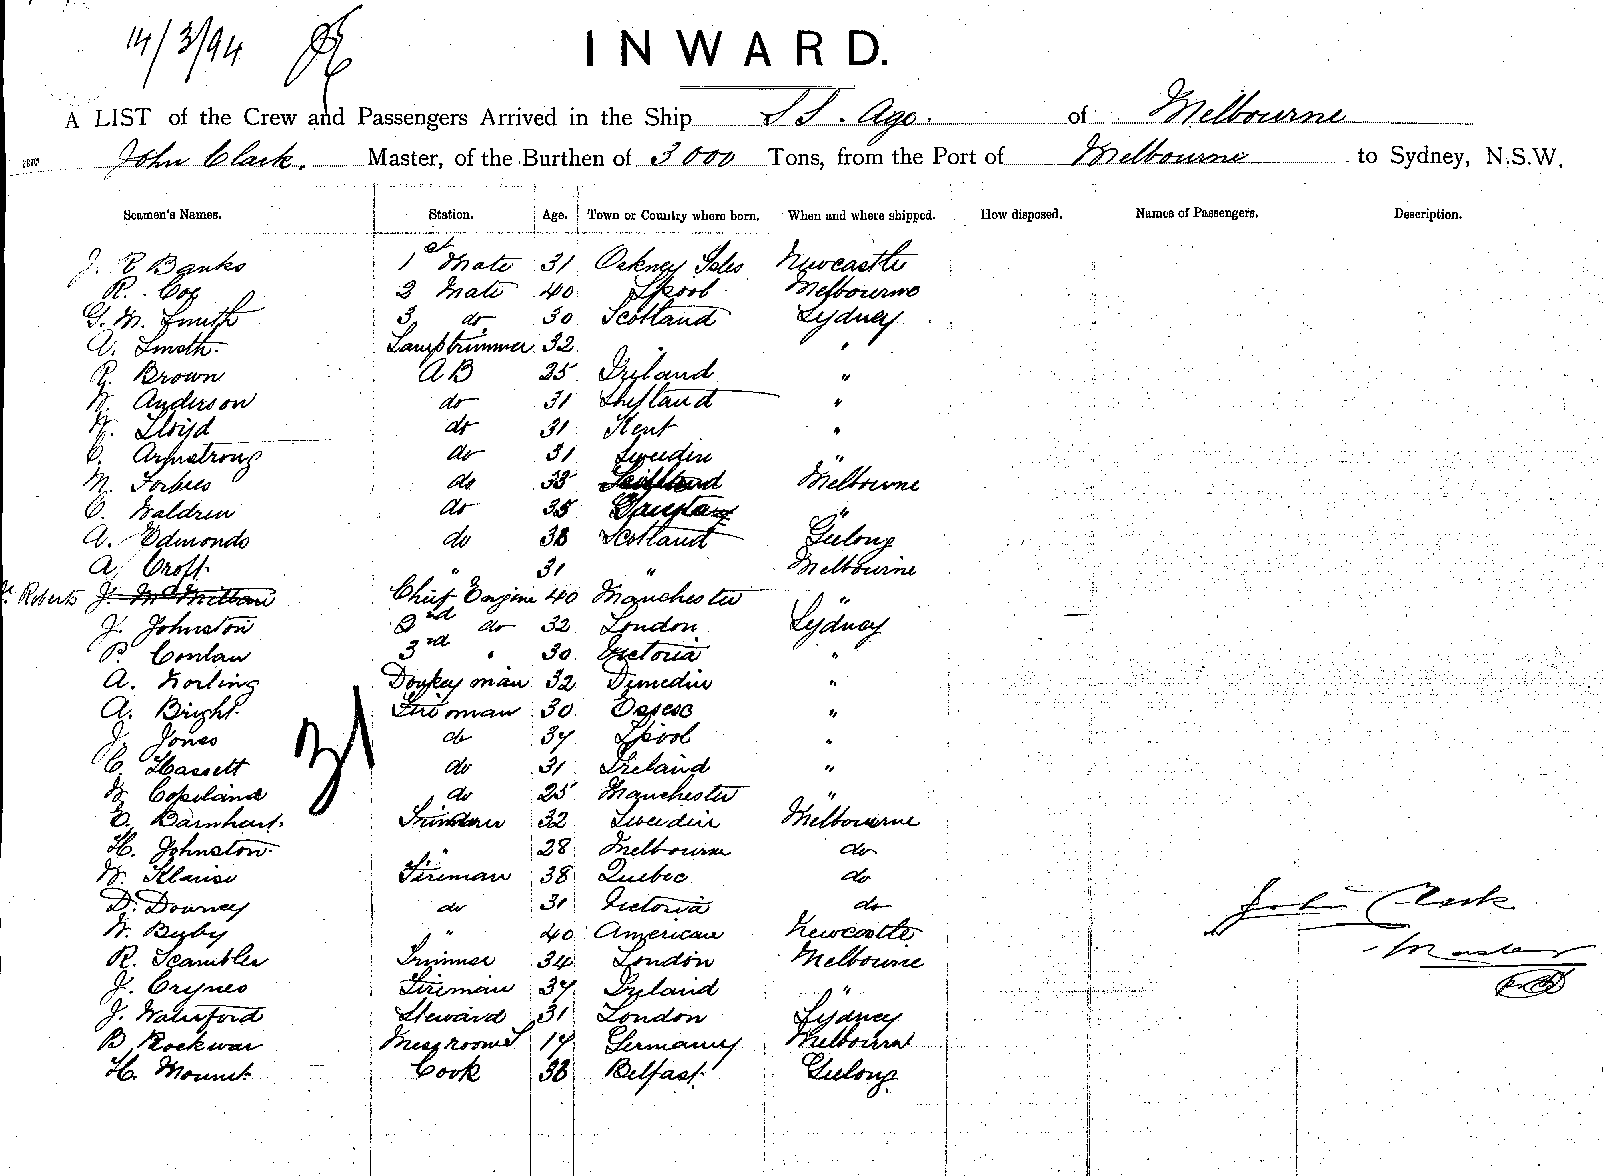 14/3/94
INWARD.
A LIST of the Crew and Passengers Arrived in the Ship SS. Ago. of Melbourne
John Clark. Master, of the Burthen of 3000 Tons, from the Port of Melbourne to Sydney, N.S.W.
Seamen's Names. Station. Age. Town or Country where born. When and where shipped. How disposed. Names of Passengers. Description.
J. R Banks 1st Mate 31 Orkney Isles Newcastle
R. Cox 2 Mate 40 Lpool Melbourne
G. M. Smith 3 do 30 Scotland Sydney
A. Smith. Lamptrimmer 32 " "
R. Brown AB 25 Ireland "
W. Anderson do 31 Shetland "
W. Lloyd do 31 Kent "
C. Armstrong do 31 Sweeden "
M. Forbes do 33 Melbourne
C. Waldren do 35 "
A. Edmonds do 38 Scotland Geelong
A. Croft. " 31 " Melbourne
Roberts J. McMillan Chief Engine 40 Manchester "
J. Johnston 2nd do 32 London Sydney
P. Conlan 3rd " 30 Victoria "
A. Norling Donkeyman 32 Dunedin "
A. Bright. Fireman 30 Essex "
J. Jones do 37 Lpool "
C. Hassett do 31 Ireland "
W. Copeland do 25 Manchester "
31
E. Barnhart. Trimmer 32 Sweedin Melbourne
H. Johnston. " 28 Melbourne do
W. Fireman 38 Quebec do
D. Downey do 31 Victoria do
W. " 40 American Newcastle
R. Scambler Trimmer 34 London Melbourne
J. Crynes Fireman 37 Ireland "
J. Waterford Steward 31 London Sydney
B. Rockwar Messroom S 17 Germany Melbourne
H. Mount. Cook 38 Belfast. Geelong.
John Clark
Master